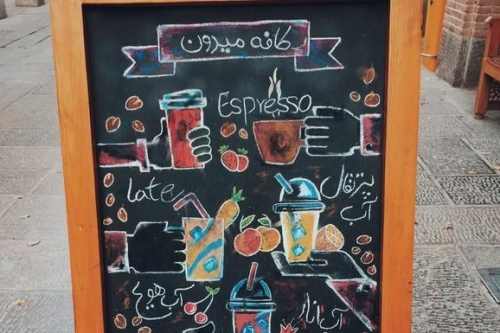 کافه میرون
Espresso
late
پرتقال
آب
آب هویج
آب انار